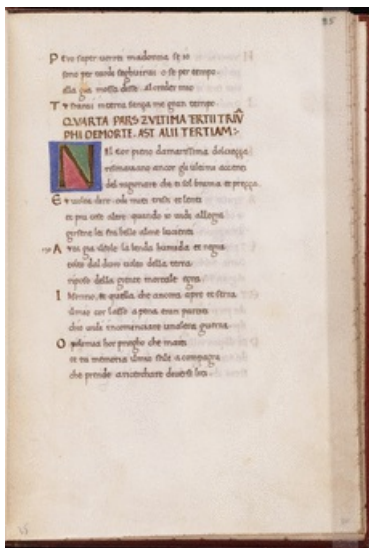 35
Pero saper vorrei madonna se io
sono per tardi seghuirvi o se per tempo
ella gia mossa disse al creder mio
Tu starai in terra senza me gran tempo
QVARTA PARS ZVLTIMA TERTII TRIV̄
PHI DE MORTE. AST ALII TERTIAM:·
Nel cor pieno damarissima dolcezza
risonavano ancor gli ultimi accenti
del ragionare che ei sol brama et prezza
Et volea dire o di miei tristi et lenti
et piu cose altre quando io vidi allegra
girsene lei fra belle alme lucenti
Avea gia il sole la benda humida et negra
tolta dal duro volto della terra
riposo della gente mortale egra
Il sonno et quella che ancora apre et serra
il mio cor lasso a pena eran partiti
chio vidi incominciare unaltra guerra
O polimnia hor priegho che maiti
et tu memoria il mio stile accompagni
che prende a ricerchare diversi liti